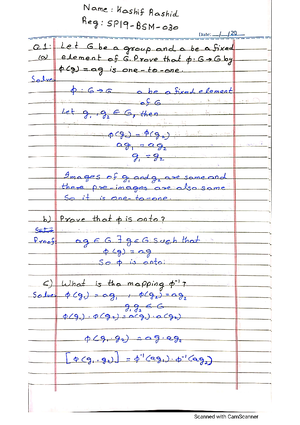 Name: Kashif Rashid
Reg: SP19-BSM-030
Date: __/__/20__
Q1: Let G be a group and a be a fixed
(a) element of G. Prove that φ: G→G by
φ(g) = ag is one-to-one.
Solve
φ: G→G a be a fixed element
of G
Let g₁, g₂ ∈ G, then
φ(g₁) = φ(g₂)
ag₁ = ag₂
g₁ = g₂
Images of g₁ and g₂ are same and
there pre-images are also same
So it is one-to-one.
b) Prove that φ is onto?
Proof: ag ∈ G ∃ g ∈ G such that
φ(g) = ag
So φ is onto.
c) What is the mapping φ⁻¹?
Solve: φ(g₁) = ag₁ , φ(g₂) = ag₂
g₁g₂ ∈ G
φ(g₁)·φ(g₂) = a(g₁)·a(g₂)
φ(g₁·g₂) = ag₁·ag₂
[φ(g₁·g₂)] = φ⁻¹(ag₁)·φ⁻¹(ag₂)
Scanned with CamScanner